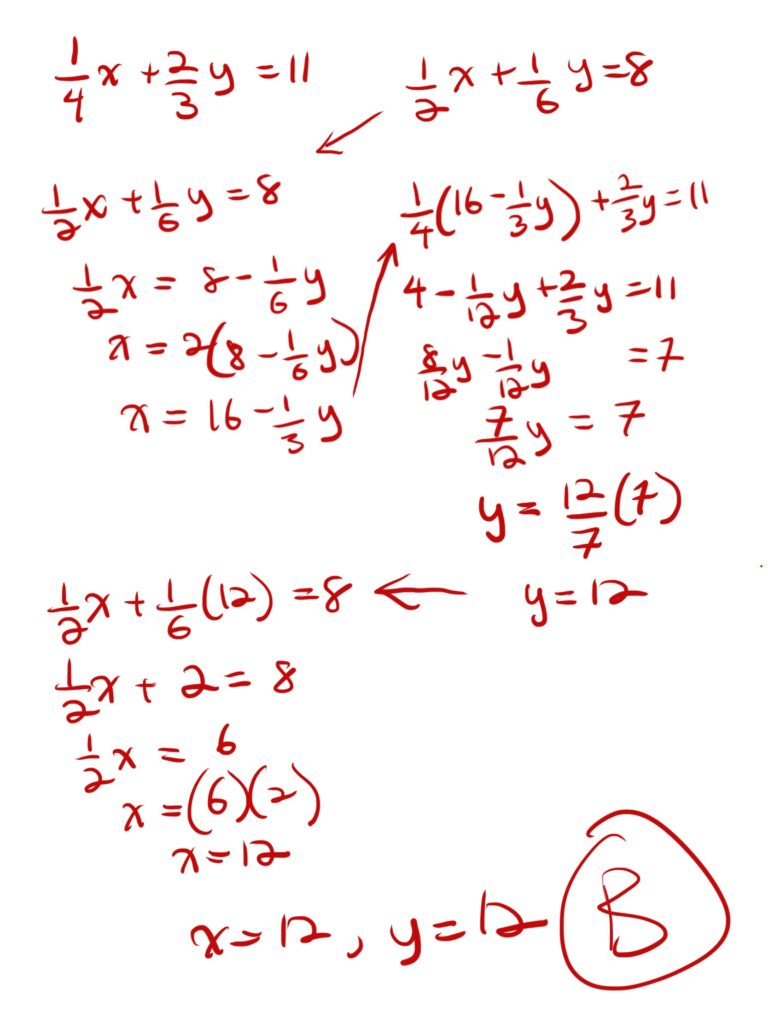 1/4 x + 2/3 y = 11
1/2 x + 1/6 y = 8
1/2 x + 1/6 y = 8
1/2 x = 8 - 1/6 y
x = 2(8 - 1/6 y)
x = 16 - 1/3 y
1/4 (16 - 1/3 y) + 2/3 y = 11
4 - 1/12 y + 2/3 y = 11
8/12 y - 1/12 y = 7
7/12 y = 7
y = 12/7 (7)
y = 12
1/2 x + 1/6 (12) = 8
1/2 x + 2 = 8
1/2 x = 6
x = (6)(2)
x = 12
x = 12, y = 12
B